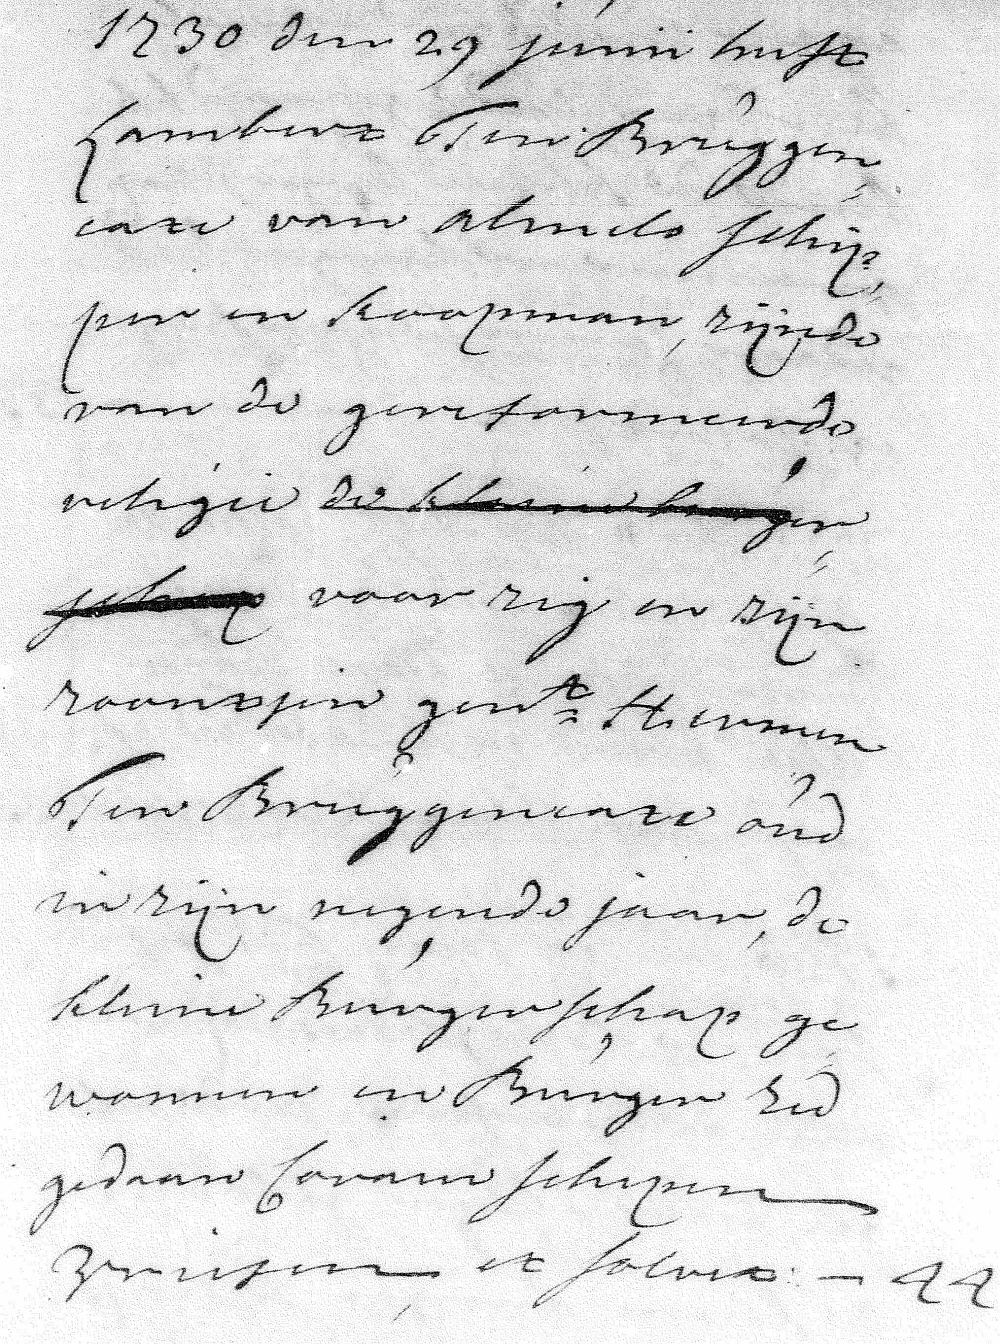 1730 den 29 junii heeft
Lambert Ten Bruggen
cate van Almelo schip
per en koopman, zijnde
van de gereformeerde
religie de kleine burger
schap voor zig en zijn
zoontjen gen.t Hermen
Ten Bruggencate oud
in zijn negende jaar, de
kleine Burgerschap ge
wonnen en Burger Eid
gedaan Coram schepen
et solvit — 44